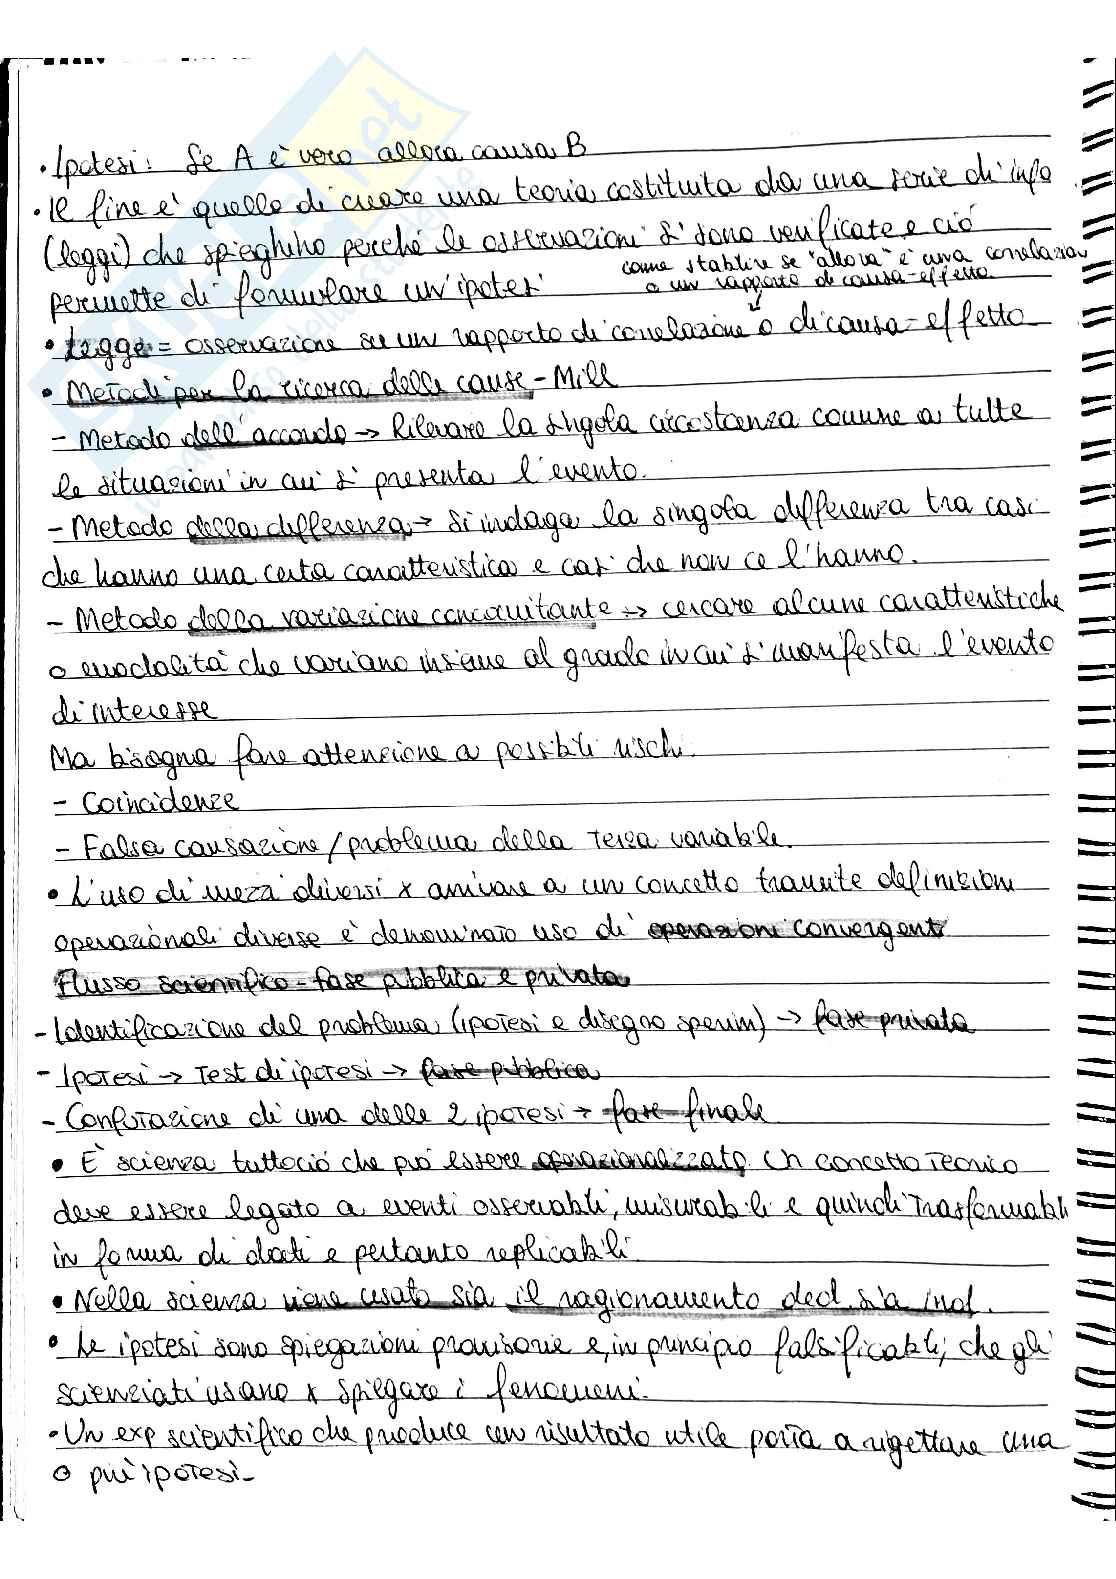 • Ipotesi: Se A è vero allora causa B
• Il fine è quello di creare una teoria costituita da una serie di info
(leggi) che spieghino perché le osservazioni si sono verificate e ciò
permette di formulare un'ipotesi
come stabilire se "allora" è una correlazion
o un rapporto di causa-effetto
• Legge = osservazione su un rapporto di correlazione o di causa-effetto
• Metodi per la ricerca delle cause - Mill
- Metodo dell'accordo → Rilevare la singola circostanza comune a tutte
le situazioni in cui si presenta l'evento.
- Metodo della differenza → Si indaga la singola differenza tra casi
che hanno una certa caratteristica e casi che non ce l'hanno.
- Metodo della variazione concomitante → cercare alcune caratteristiche
o modalità che variano insieme al grado in cui si manifesta l'evento
di interesse
Ma bisogna fare attenzione a possibili rischi:
- Coincidenze
- Falsa causazione / problema della terza variabile.
• L'uso di mezzi diversi x arrivare a un concetto tramite definizioni
operazionali diverse è denominato uso di operazioni convergenti
Flusso scientifico - fase pubblica e privata
- Identificazione del problema (ipotesi e disegno sperim) → fase privata
- Ipotesi → Test di ipotesi → fase pubblica
- Confutazione di una delle 2 ipotesi → fase finale
• È scienza tuttociò che può essere operazionalizzato. Un concetto teorico
deve essere legato a eventi osservabili, misurabili e quindi trasformabili
in forma di dati e pertanto replicabili.
• Nella scienza viene usato sia il ragionamento ded. sia ind.
• Le ipotesi sono spiegazioni provvisorie e, in principio falsificabili, che gli
scienziati usano x spiegare i fenomeni.
• Un exp scientifico che produce un risultato utile porta a rigettare una
o più ipotesi -